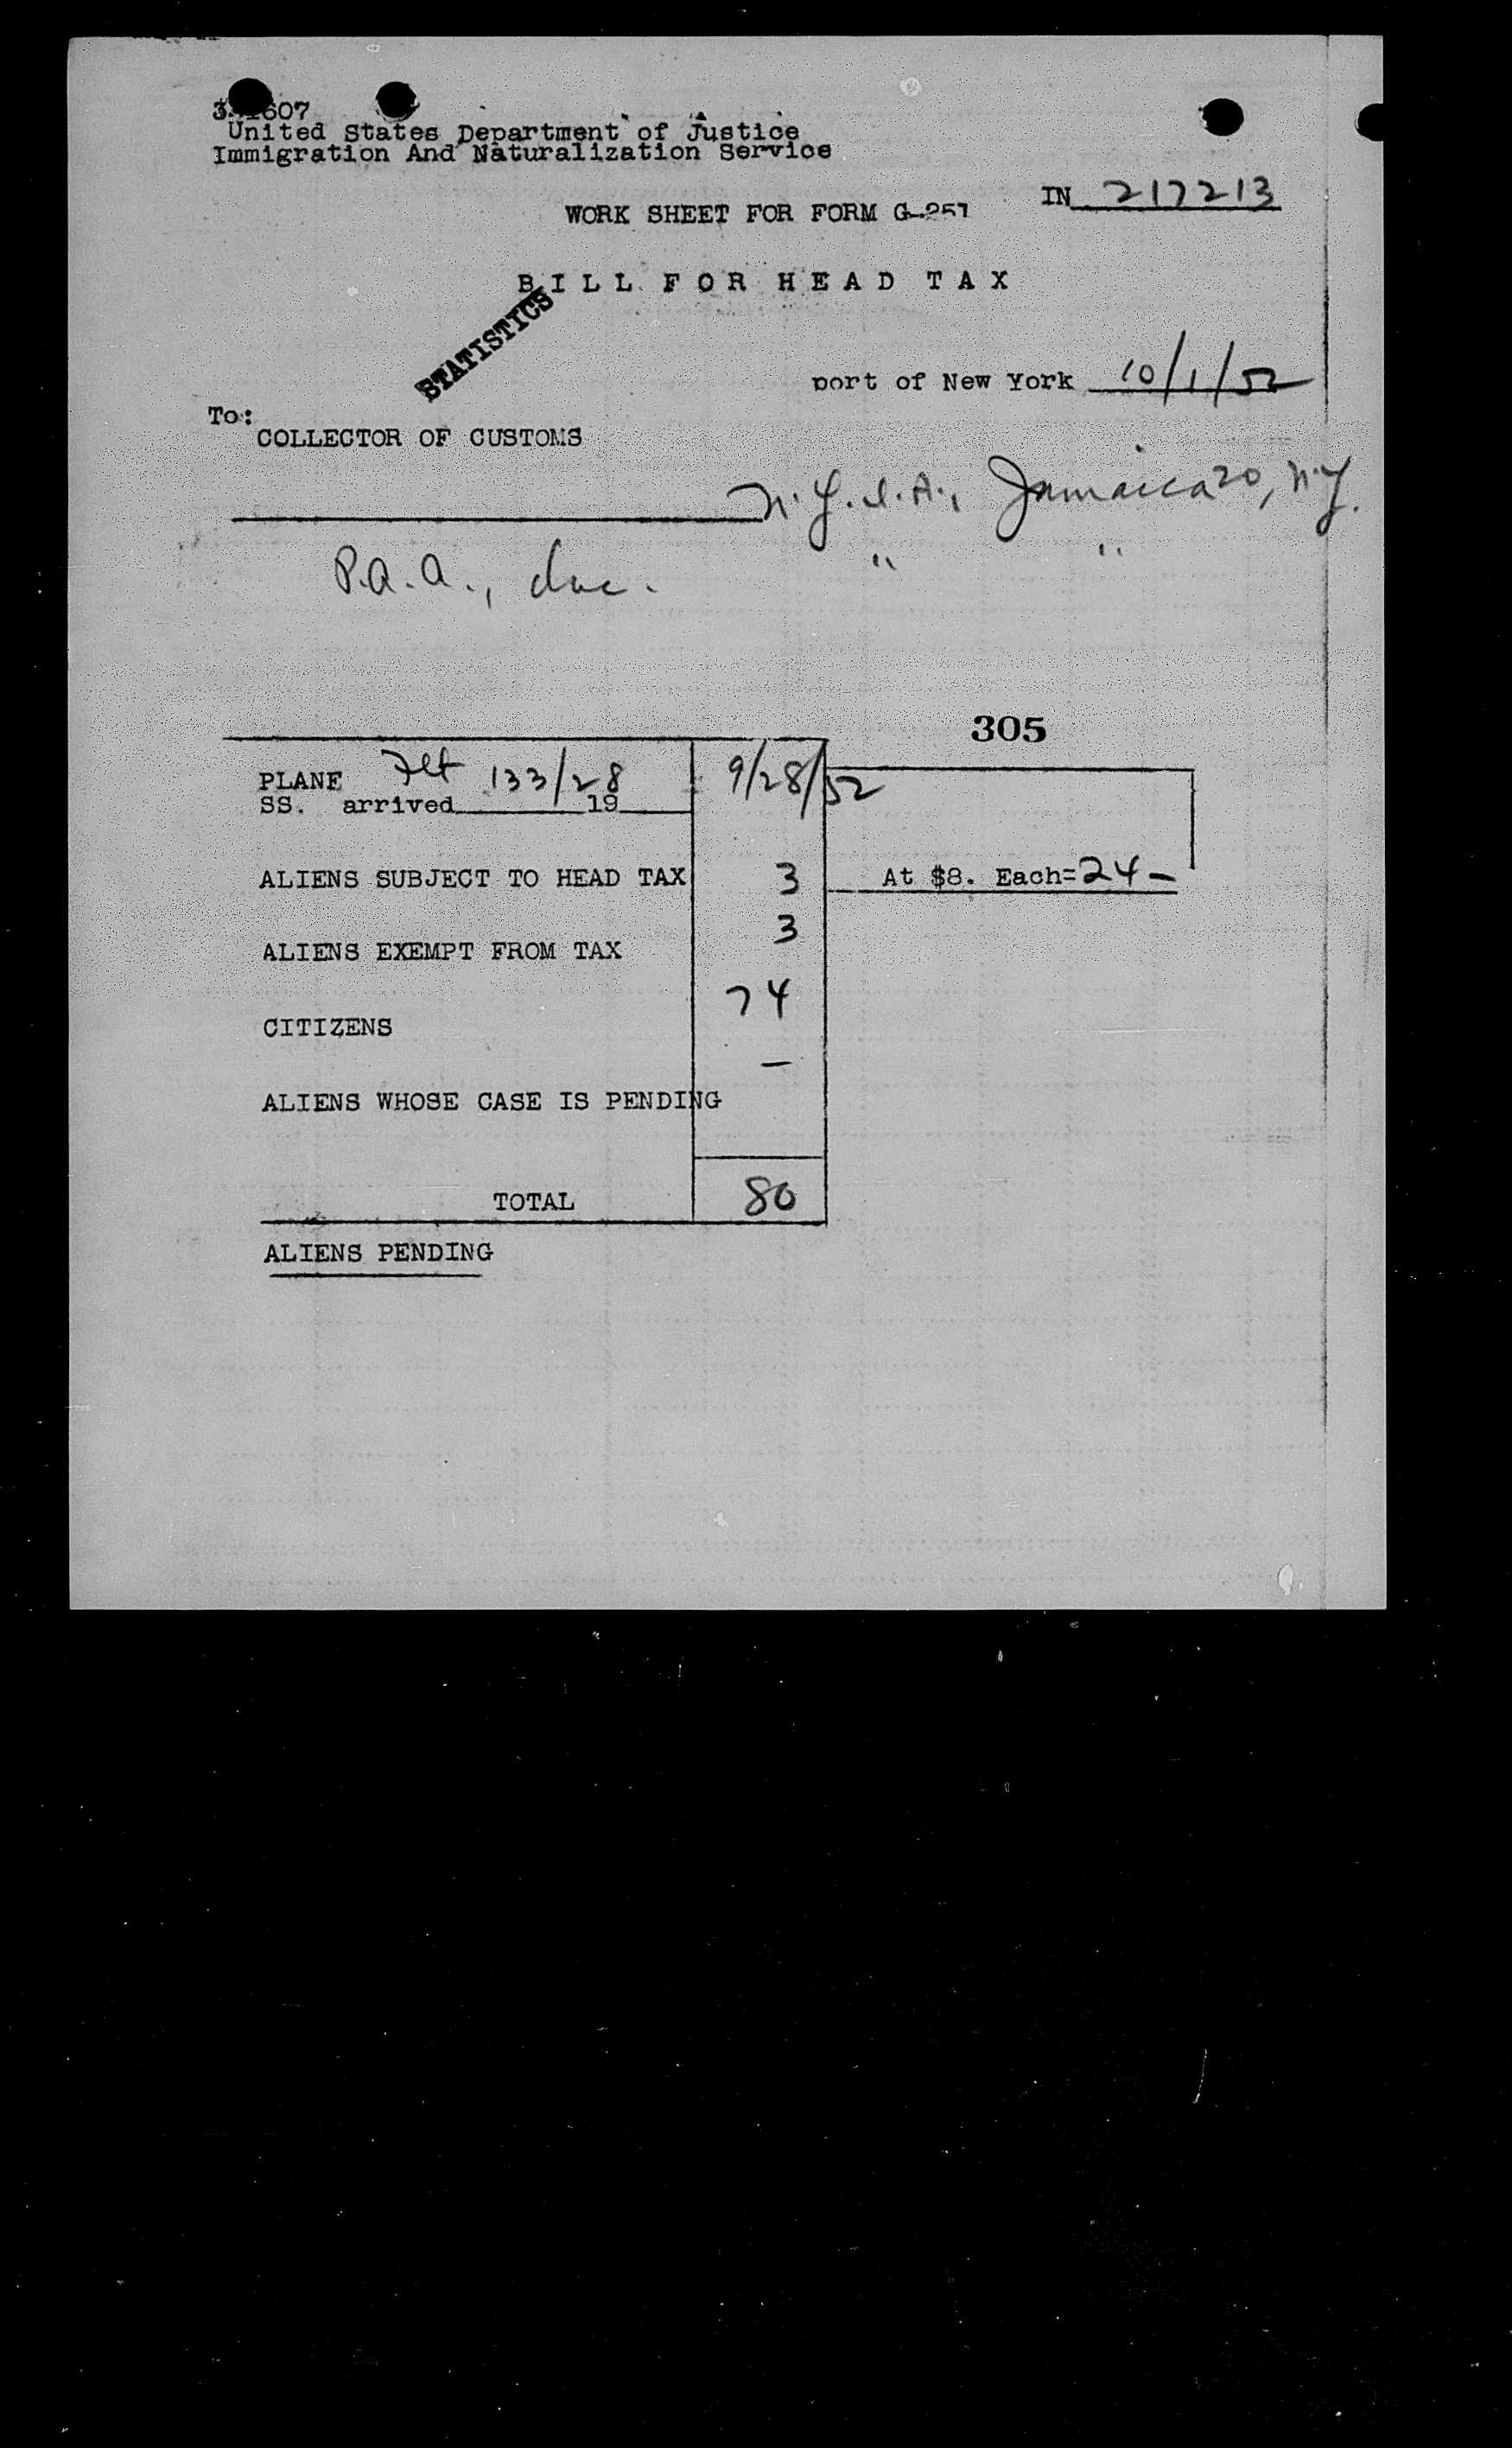 607
United States Department of Justice
Immigration And Naturalization Service
IN 217213
WORK SHEET FOR FORM G-251
BILL FOR HEAD TAX
STATISTICS
port of New York 10/1/52
To:
COLLECTOR OF CUSTOMS
N.Y.I.A., Jamaica 20, N.Y.
P.A.A., Inc. " "
305
PLANE Flt 133/28 9/28/52
SS. arrived 19
ALIENS SUBJECT TO HEAD TAX 3 At $8. Each=24-
ALIENS EXEMPT FROM TAX 3
CITIZENS 74
ALIENS WHOSE CASE IS PENDING -
TOTAL 80
ALIENS PENDING